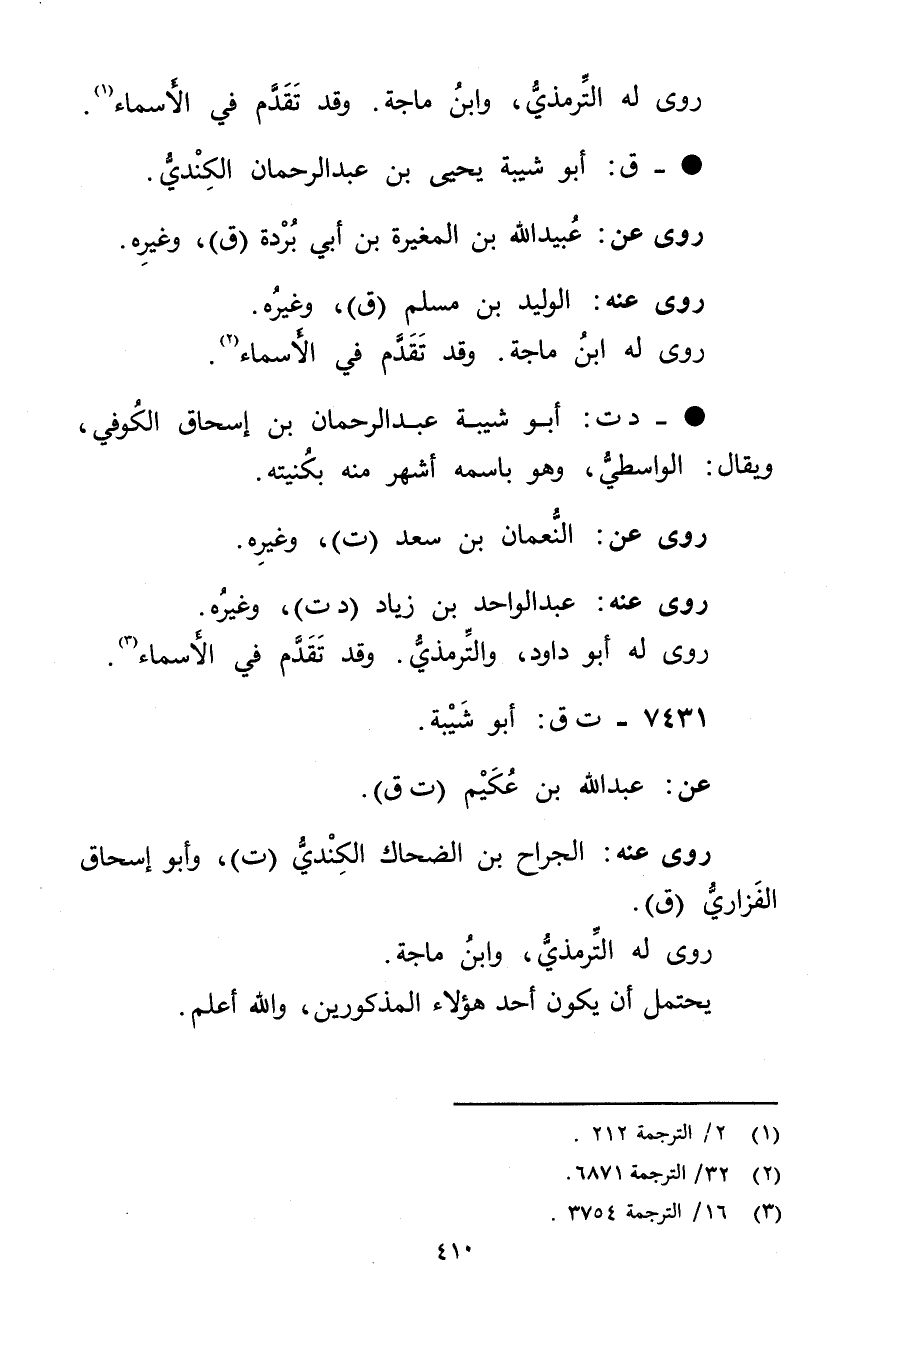 روى له التِّرمذيُّ، وابنُ ماجة. وقد تَقَدَّم في الأَسماء(١).
● ـ ق: أبو شيبة يحيى بن عبدالرحمان الكِنْديُّ.
روى عن: عُبيدالله بن المغيرة بن أبي بُرْدة (ق)، وغيرِه.
روى عنه: الوليد بن مسلم (ق)، وغيرُه.
روى له ابنُ ماجة. وقد تَقَدَّم في الأَسماء(٢).
● ـ د ت: أبو شيبة عبدالرحمان بن إسحاق الكُوفي،
ويقال: الواسطيُّ، وهو باسمه أشهر منه بكُنيته.
روى عن: النُّعمان بن سعد (ت)، وغيرِه.
روى عنه: عبدالواحد بن زياد (د ت)، وغيرُه.
روى له أبو داود، والتِّرمذيُّ. وقد تَقَدَّم في الأَسماء(٣).
٧٤٣١ ـ ت ق: أبو شَيْبة.
عن: عبدالله بن عُكَيْم (ت ق).
روى عنه: الجراح بن الضحاك الكِنْديُّ (ت)، وأبو إسحاق
الفَزاريُّ (ق).
روى له التِّرمذيُّ، وابنُ ماجة.
يحتمل أن يكون أحد هؤلاء المذكورين، والله أعلم.
(١) ٢/ الترجمة ٢١٢ .
(٢) ٣٢/ الترجمة ٦٨٧١.
(٣) ١٦/ الترجمة ٣٧٥٤ .
٤١٠